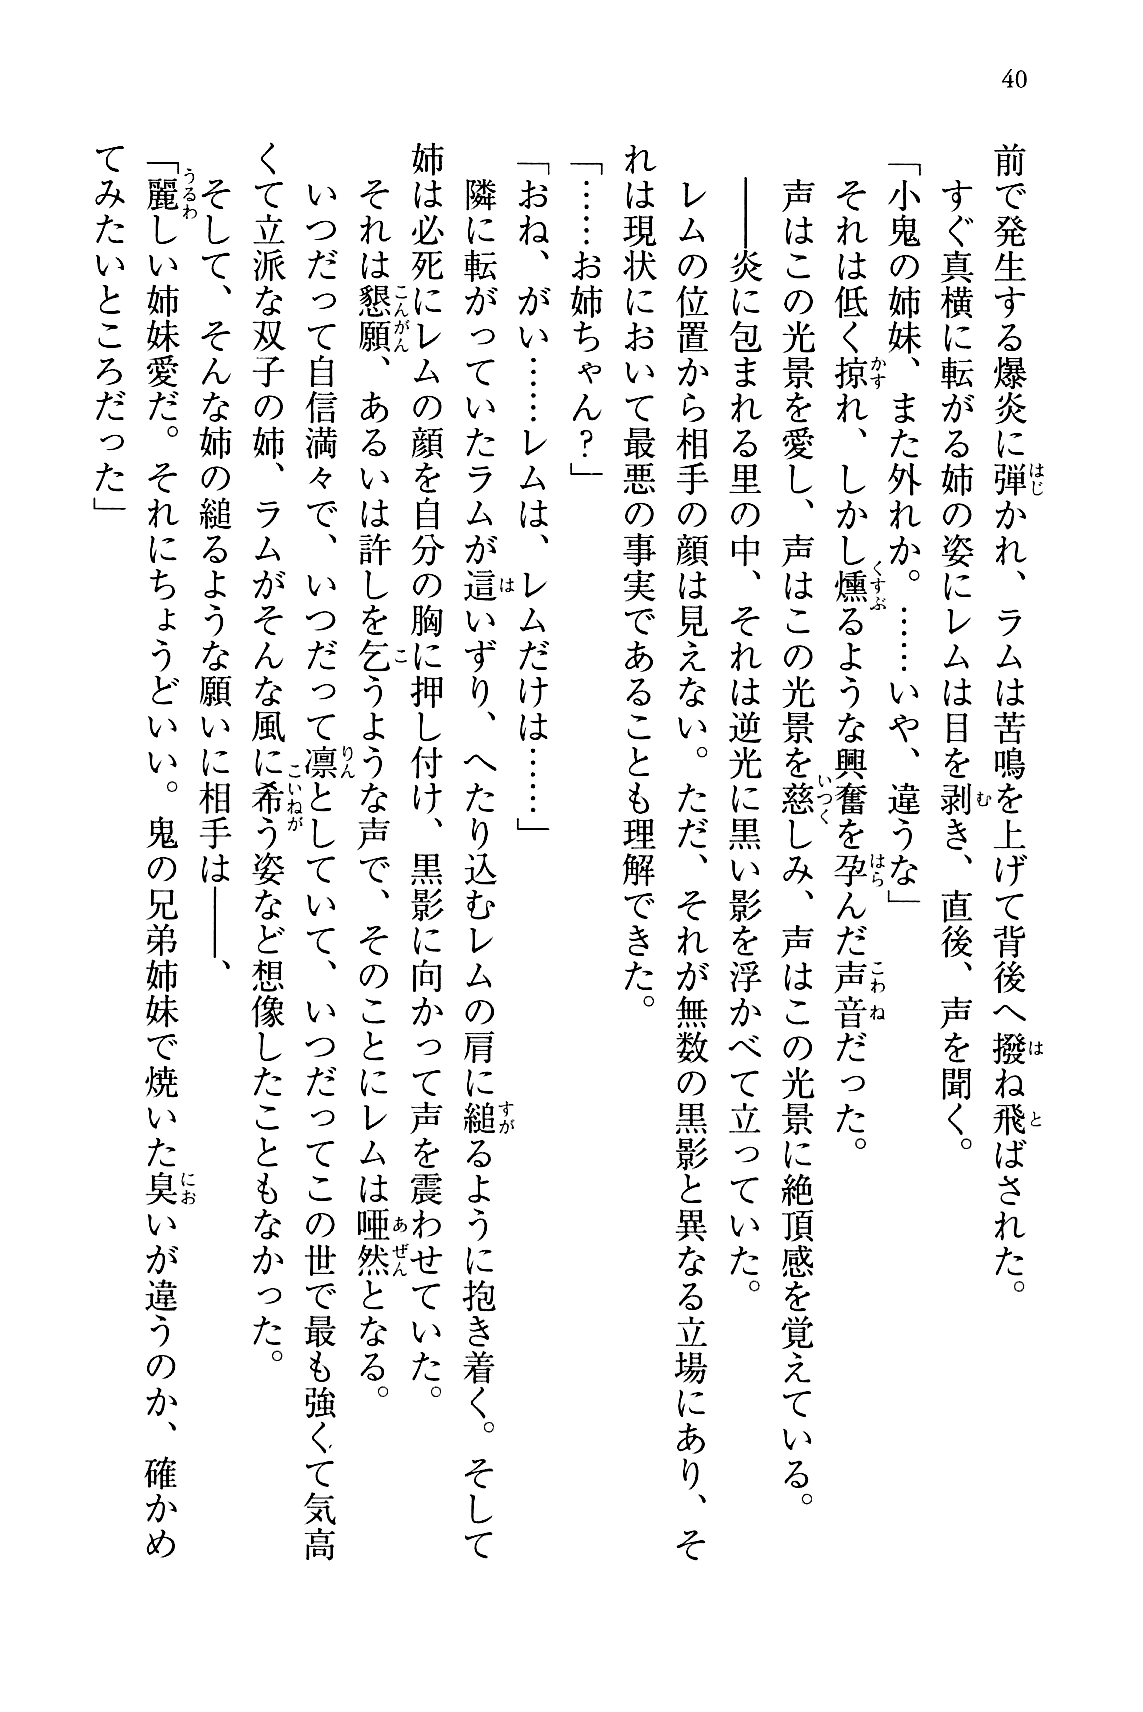 40
前で発生する爆炎に弾かれ、ラムは苦鳴を上げて背後へ撥ね飛ばされた。
すぐ真横に転がる姉の姿にレムは目を剥き、直後、声を聞く。
「小鬼の姉妹、また外れか。……いや、違うな」
それは低く掠れ、しかし燻るような興奮を孕んだ声音だった。
声はこの光景を愛し、声はこの光景を慈しみ、声はこの光景に絶頂感を覚えている。
――炎に包まれる里の中、それは逆光に黒い影を浮かべて立っていた。
レムの位置から相手の顔は見えない。ただ、それが無数の黒影と異なる立場にあり、そ
れは現状において最悪の事実であることも理解できた。
「……お姉ちゃん？」
「おね、がい……レムは、レムだけは……」
隣に転がっていたラムが這いずり、へたり込むレムの肩に縋るように抱き着く。そして
姉は必死にレムの顔を自分の胸に押し付け、黒影に向かって声を震わせていた。
それは懇願、あるいは許しを乞うような声で、そのことにレムは唖然となる。
いつだって自信満々で、いつだって凛としていて、いつだってこの世で最も強くて気高
くて立派な双子の姉、ラムがそんな風に希う姿など想像したこともなかった。
そして、そんな姉の縋るような願いに相手は――、
「麗しい姉妹愛だ。それにちょうどいい。鬼の兄弟姉妹で焼いた臭いが違うのか、確かめ
てみたいところだった」